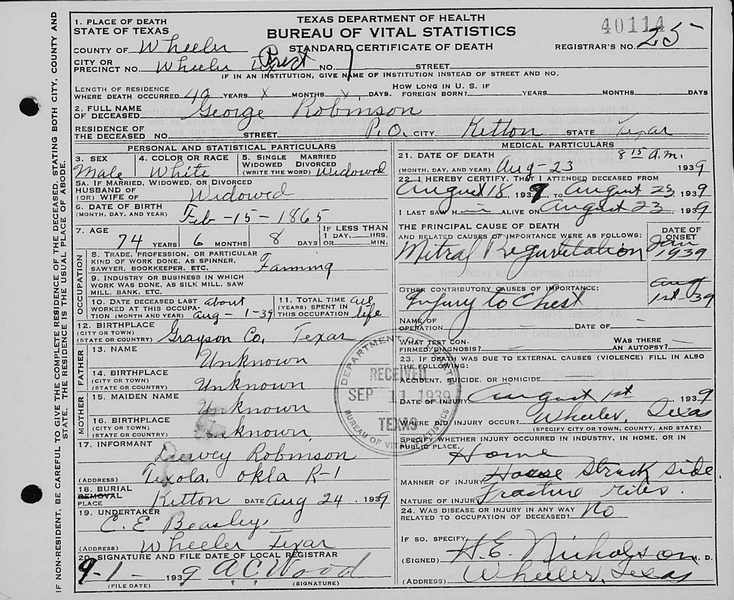 TEXAS DEPARTMENT OF HEALTH
BUREAU OF VITAL STATISTICS
STANDARD CERTIFICATE OF DEATH
40114
REGISTRAR'S NO. 25
1. PLACE OF DEATH
STATE OF TEXAS
COUNTY OF Wheeler
CITY OR
PRECINCT NO. Wheeler Prect NO. 1 STREET
IF IN AN INSTITUTION, GIVE NAME OF INSTITUTION INSTEAD OF STREET AND NO.
LENGTH OF RESIDENCE
WHERE DEATH OCCURRED 49 YEARS x MONTHS x DAYS. HOW LONG IN U. S. IF FOREIGN BORN? YEARS MONTHS DAYS
2. FULL NAME
OF DECEASED George Robinson
RESIDENCE OF
THE DECEASED NO. STREET P.O. CITY Kelton STATE Texas
PERSONAL AND STATISTICAL PARTICULARS
3. SEX Male
4. COLOR OR RACE White
5. SINGLE MARRIED WIDOWED DIVORCED (WRITE THE WORD) Widowed
5A. IF MARRIED, WIDOWED, OR DIVORCED
HUSBAND OF
(OR) WIFE OF Widowed
6. DATE OF BIRTH
(MONTH, DAY, AND YEAR) Feb-15-1865
7. AGE 74 YEARS 6 MONTHS 8 DAYS IF LESS THAN 1 DAY, HRS. OR MIN.
OCCUPATION
8. TRADE, PROFESSION, OR PARTICULAR
KIND OF WORK DONE, AS SPINNER,
SAWYER, BOOKKEEPER, ETC. Farming
9. INDUSTRY OR BUSINESS IN WHICH
WORK WAS DONE, AS SILK MILL, SAW
MILL, BANK, ETC.
10. DATE DECEASED LAST
WORKED AT THIS OCCUPA-
TION (MONTH AND YEAR) about Aug-1-39
11. TOTAL TIME (YEARS) SPENT IN THIS OCCUPATION all life
12. BIRTHPLACE
(CITY OR TOWN)
(STATE OR COUNTRY) Grayson Co, Texas
FATHER
13. NAME Unknown
14. BIRTHPLACE
(CITY OR TOWN)
(STATE OR COUNTRY) Unknown
MOTHER
15. MAIDEN NAME Unknown
16. BIRTHPLACE
(CITY OR TOWN)
(STATE OR COUNTRY) Unknown
17. INFORMANT Dewey Robinson
(ADDRESS) Texola, Okla R-1
18. BURIAL
REMOVAL
PLACE Kelton DATE Aug 24 1939
19. UNDERTAKER
C. E. Beasley
(ADDRESS) Wheeler Texas
20. SIGNATURE AND FILE DATE OF LOCAL REGISTRAR
9-1- 1939 A.C. Wood
(FILE DATE) (SIGNATURE)
MEDICAL PARTICULARS
21. DATE OF DEATH 8 15 A.M.
(MONTH, DAY, AND YEAR) Aug-23 1939
22. I HEREBY CERTIFY, THAT I ATTENDED DECEASED FROM
August 18 1939 TO August 23, 1939
I LAST SAW H im ALIVE ON August 23 1939
THE PRINCIPAL CAUSE OF DEATH
AND RELATED CAUSES OF IMPORTANCE WERE AS FOLLOWS:
DATE OF ONSET
Mitral Regurgitation Jan 1939
OTHER CONTRIBUTORY CAUSES OF IMPORTANCE:
Injury to Chest Aug 1st-39
NAME OF
OPERATION — DATE OF —
WHAT TEST CON-
FIRMED DIAGNOSIS? — WAS THERE AN AUTOPSY? —
23. IF DEATH WAS DUE TO EXTERNAL CAUSES (VIOLENCE) FILL IN ALSO
THE FOLLOWING:
ACCIDENT, SUICIDE, OR HOMICIDE
DATE OF INJURY August 1st 1939
WHERE DID INJURY OCCUR? Wheeler, Texas
(SPECIFY CITY OR TOWN, COUNTY, AND STATE)
SPECIFY WHETHER INJURY OCCURRED IN INDUSTRY, IN HOME, OR IN
PUBLIC PLACE, Home
MANNER OF INJURY Struck side
NATURE OF INJURY fracture ribs.
24. WAS DISEASE OR INJURY IN ANY WAY
RELATED TO OCCUPATION OF DECEASED? No
IF SO, SPECIFY
(SIGNED) H.E. Nicholson M. D.
(ADDRESS) Wheeler, Texas
DEPARTMENT OF HEALTH
RECEIVED
SEP 11 1939
TEXAS
BUREAU OF VITAL STATISTICS
IF NON-RESIDENT, BE CAREFUL TO GIVE THE COMPLETE RESIDENCE OF THE DECEASED, STATING BOTH CITY, COUNTY AND
STATE. THE RESIDENCE IS THE USUAL PLACE OF ABODE.